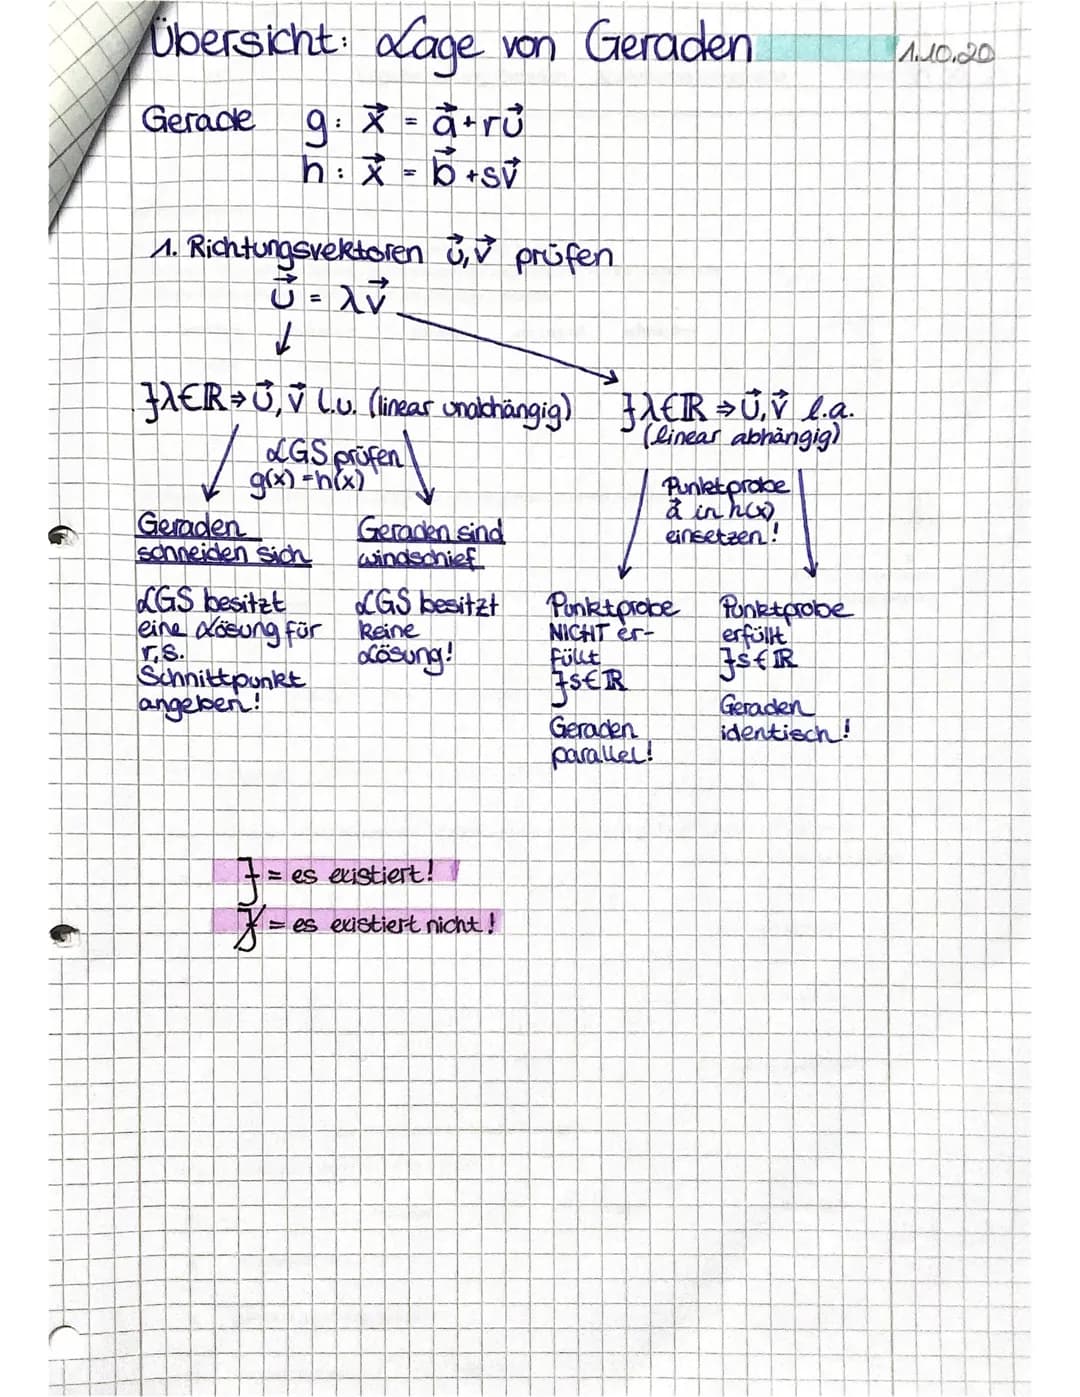 Übersicht: Lage von Geraden 1.10.20
Gerade g: x⃗ = a⃗ + ru⃗
h: x⃗ = b⃗ + sv⃗
1. Richtungsvektoren u⃗, v⃗ prüfen
u⃗ = λv⃗
∃λ∈ℝ ⇒ u⃗, v⃗ l.u. (linear unabhängig)
∃λ∈ℝ ⇒ u⃗, v⃗ l.a.
(linear abhängig)
LGS prüfen
g(x) = h(x)
Punktprobe
a⃗ in h(x)
einsetzen!
Geraden
schneiden sich
LGS besitzt
eine Lösung für
r,s.
Schnittpunkt
angeben!
Geraden sind
windschief
LGS besitzt
keine
Lösung!
Punktprobe
NICHT er-
füllt
∃s∈ℝ
Geraden
parallel!
Punktprobe
erfüllt
∃s∈ℝ
Geraden
identisch!
∃ = es existiert!
∄ = es existiert nicht!